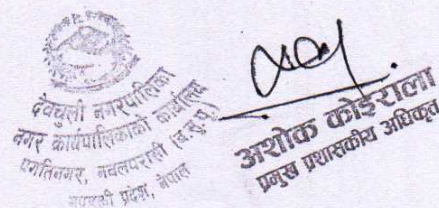 देवचुली नगरपालिका
नगर कार्यपालिकाको कार्यालय
प्रगतिनगर, नवलपरासी (ब.सु.पू.)
गण्डकी प्रदेश, नेपाल
अशोक कोईराला
प्रमुख प्रशासकीय अधिकृत